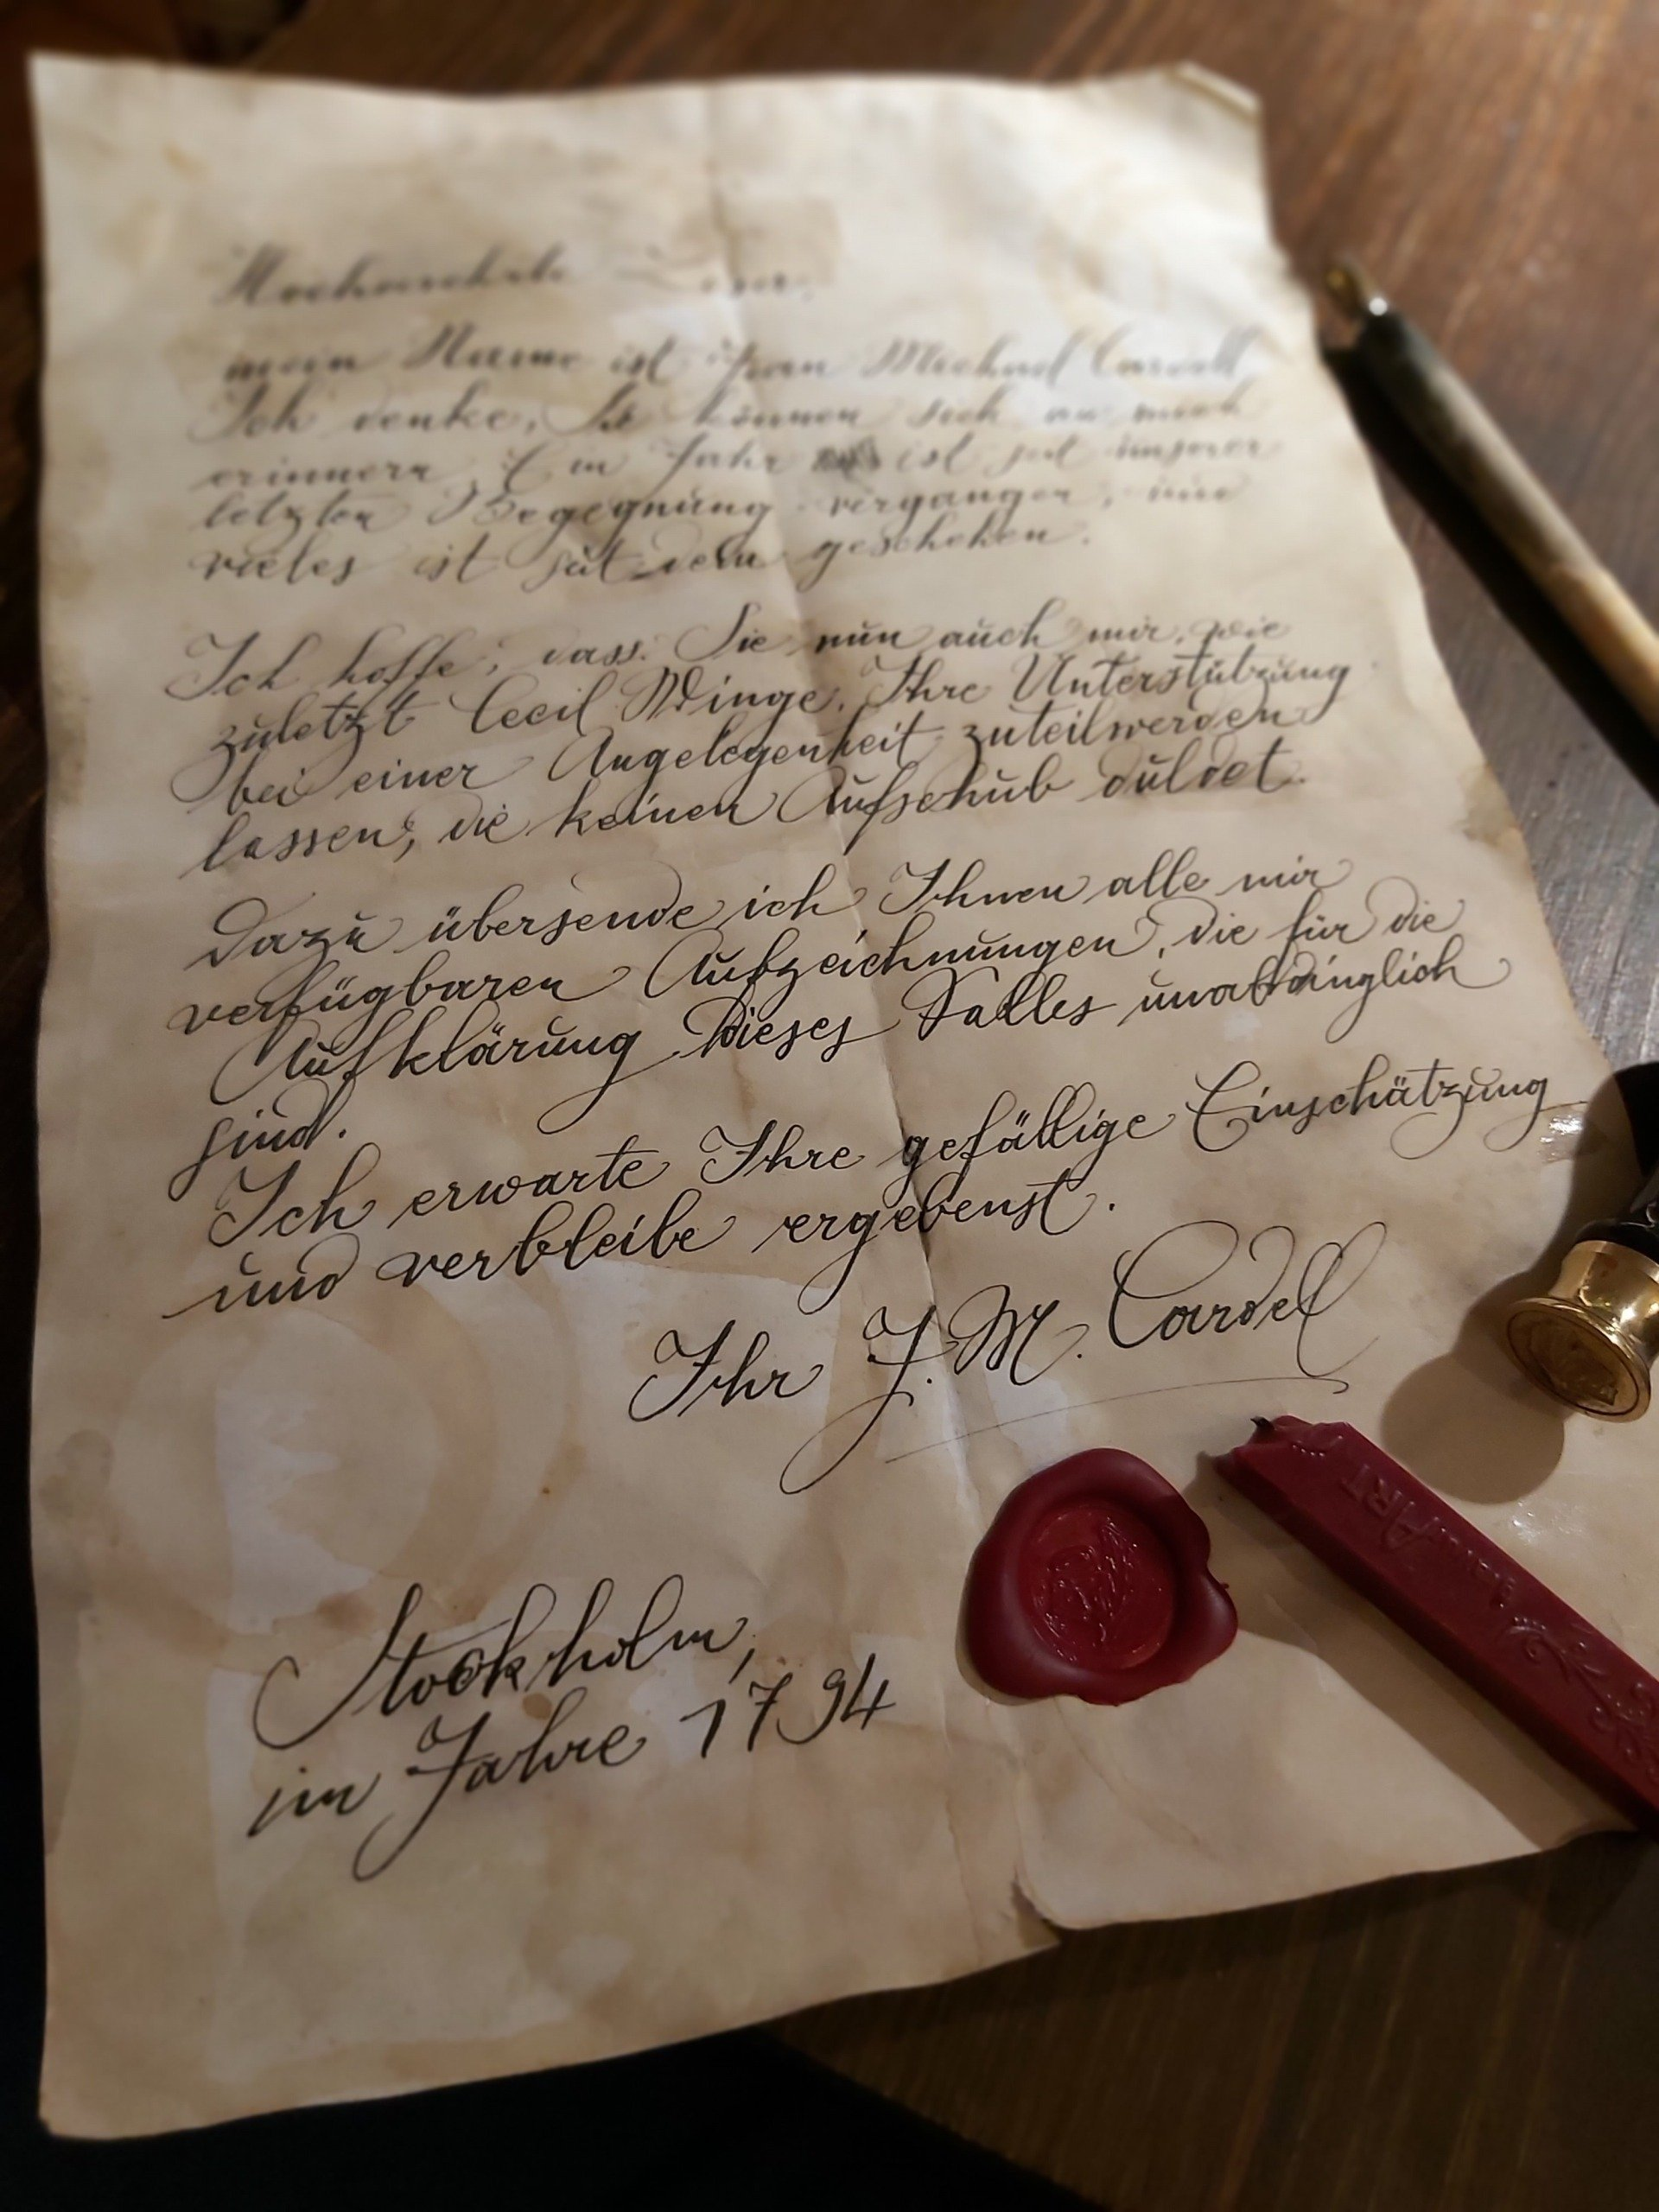 mein Name ist Jean Michael Cardell
Ich denke, Sie können sich an mich
erinnern. Ein Jahr ist seit unserer
letzten Begegnung vergangen, und
vieles ist seit dem geschehen.
Ich hoffe, dass Sie nun auch mir, wie
zuletzt Cecil Winge, Ihre Unterstützung
bei einer Angelegenheit zuteilwerden
lassen, die keinen Aufschub duldet.
Dazu übersende ich Ihnen alle mir
verfügbaren Aufzeichnungen, die für die
Aufklärung dieses Falles unabdinglich
sind.
Ich erwarte Ihre gefällige Einschätzung
und verbleibe ergebenst.
Ihr J. M. Cardell
Stockholm,
im Jahre 1794
ART